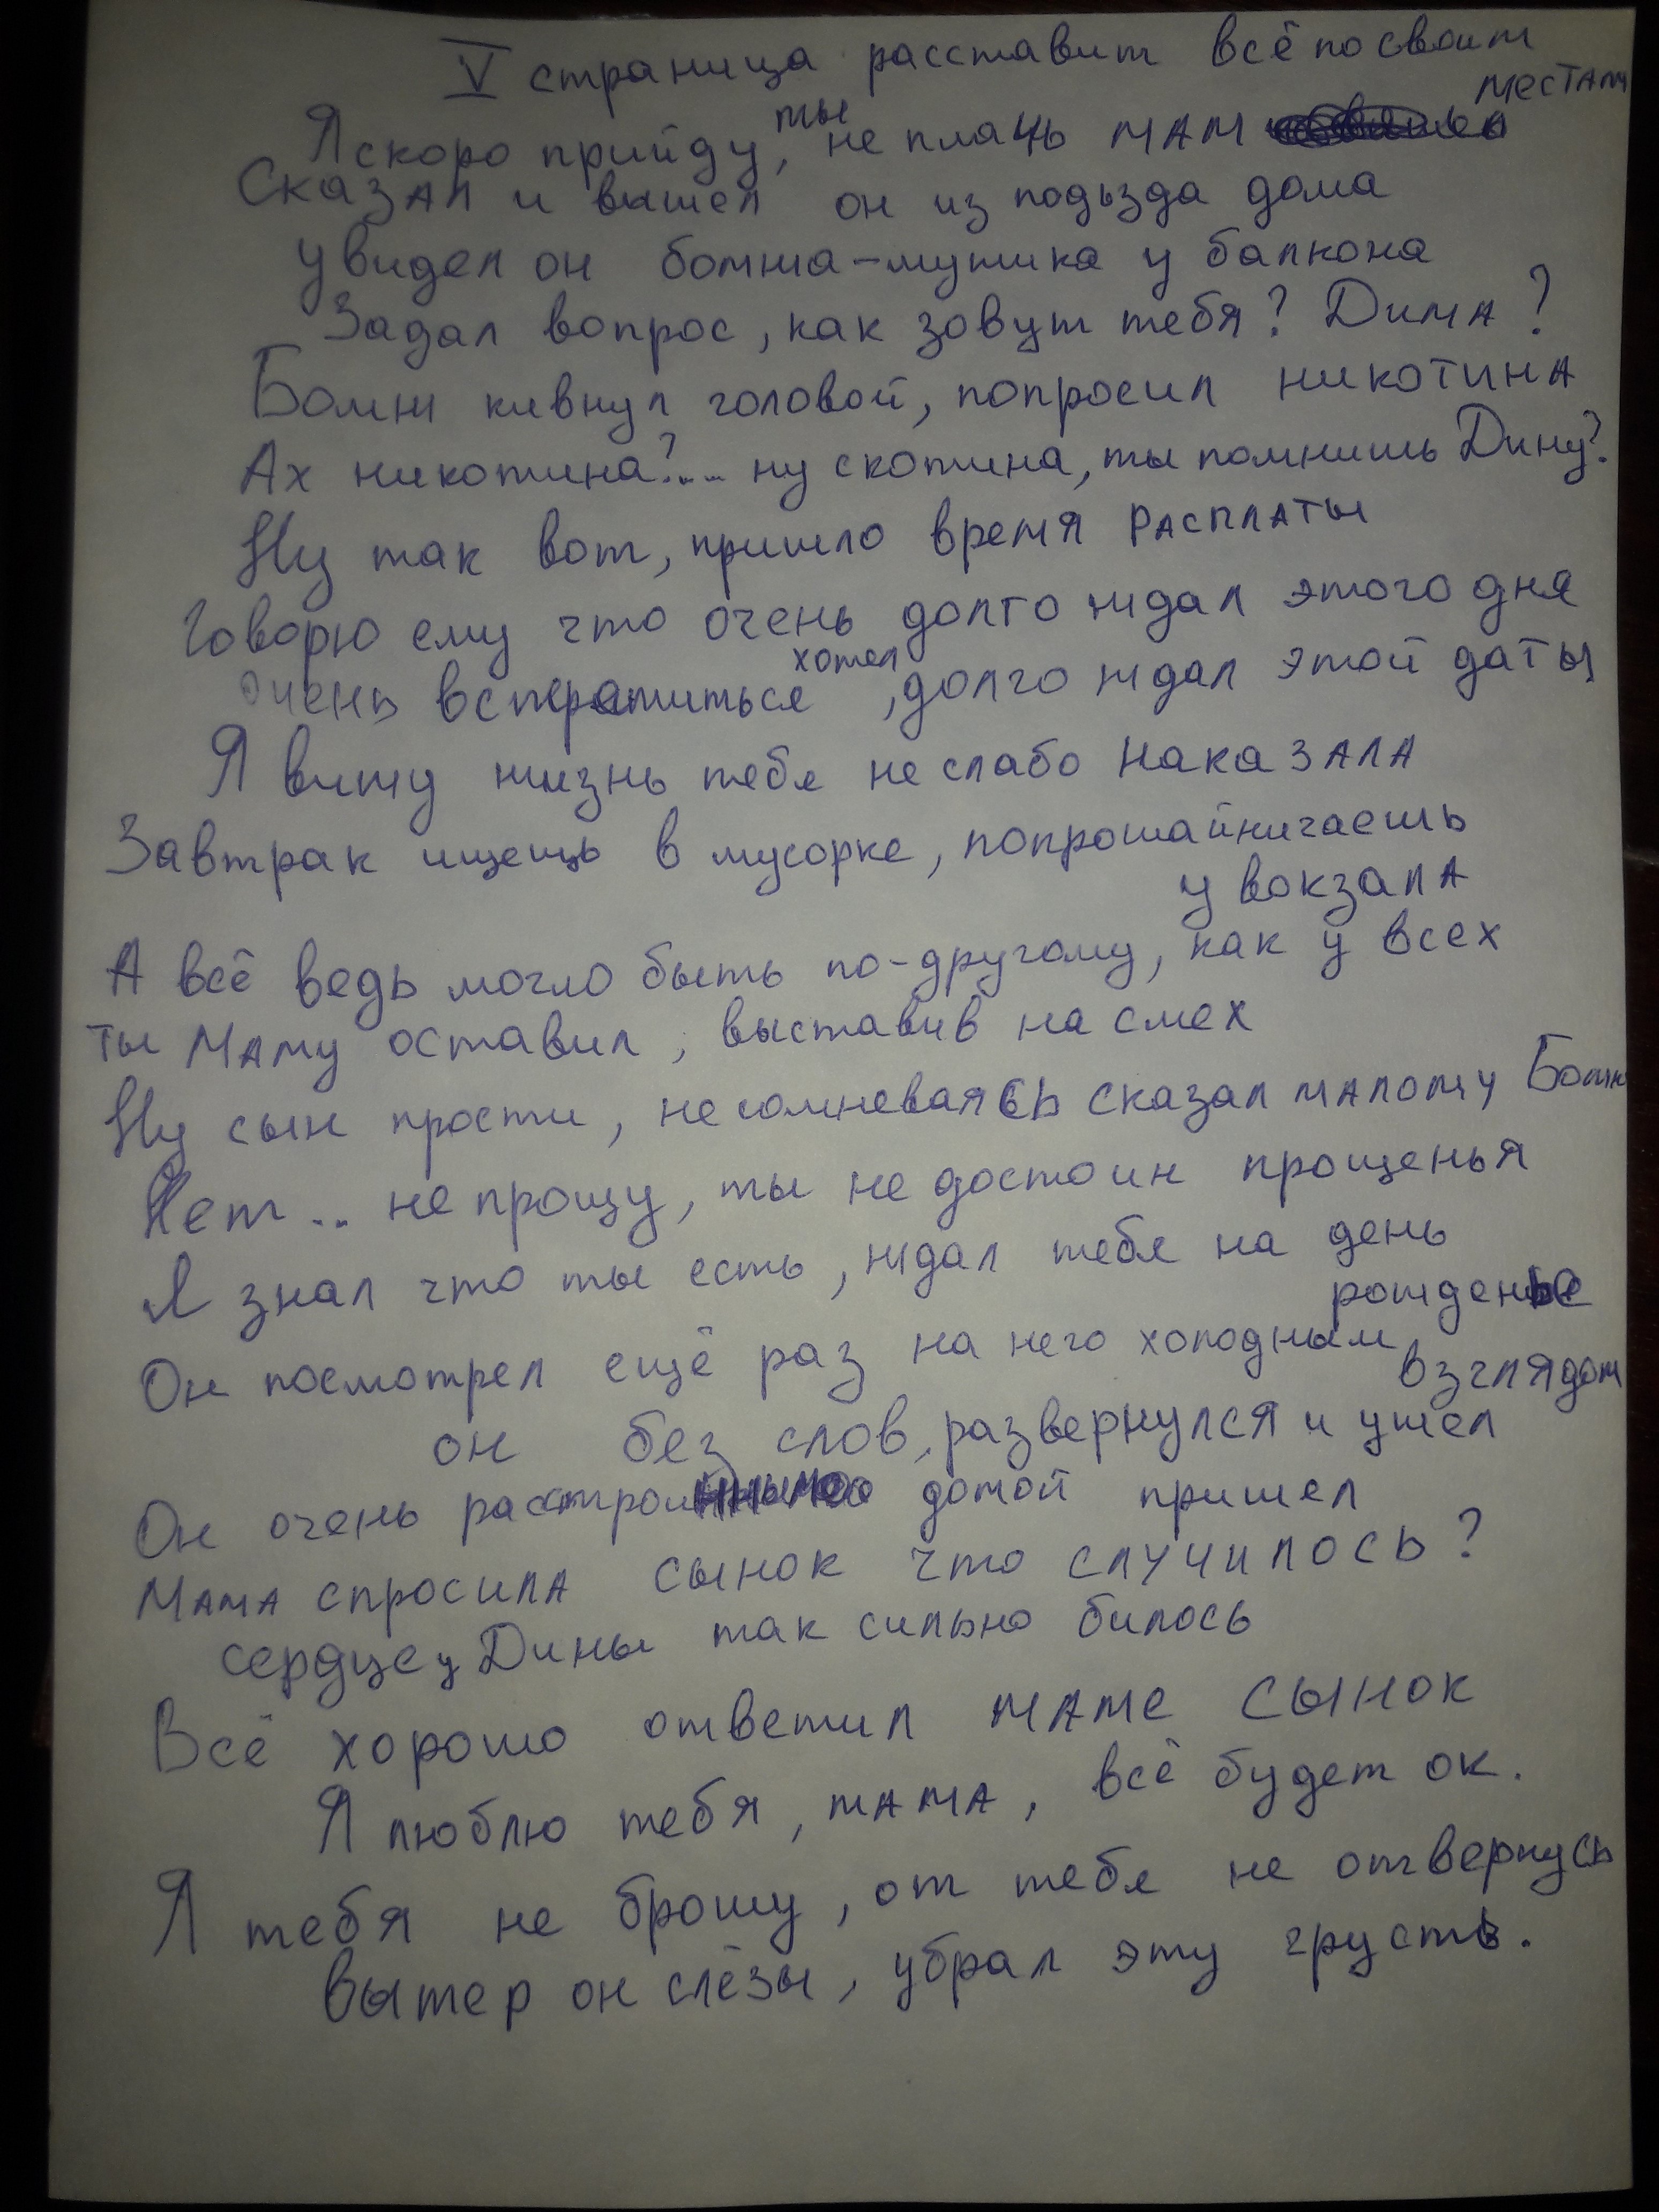 V страница расставит всё по своим
местам
Я скоро прийду, ты не плачь мам
Сказал и вышел он из подьзда дома
увидел он бомжа-мужика у балкона
Задал вопрос, как зовут тебя? Дима?
Бомж кивнул головой, попросил никотина
Ах никотина?... ну скотина, ты помнишь Дину?
Ну так вот, пришло время расплаты
Говорю ему что очень долго ждал этого дня
Очень встретиться хотел, долго ждал этой даты
Я вижу жизнь тебя не слабо наказала
Завтрак ищещь в мусорке, попрошайничаешь
у вокзала
А всё ведь могло быть по-другому, как у всех
ты маму оставил, выставив на смех
Ну сын прости, не сомневаясь сказал малому Бомж
Нет .. не прощу, ты не достоин прощенья
Я знал что ты есть, ждал тебя на день
рожденье
Он посмотрел ещё раз на него холодным
взглядом
он без слов, развернулся и ушел
Он очень домой пришел
Мама спросила сынок что случилось?
сердце у Дины так сильно билось
Всё хорошо ответил маме сынок
Я люблю тебя, мама, всё будет ок.
Я тебя не брошу, от тебя не отвернусь
Вытер он слёзы, убрал эту грусть.